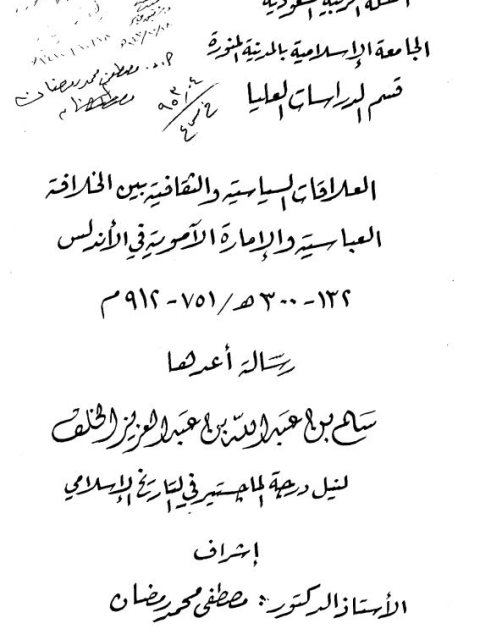 المملكة العربية السعودية
الجامعة الإسلامية بالمدينة المنورة
قسم الدراسات العليا
أ.د. مصطفى محمد رمضان
٩٥٣٠٤
العلاقات السياسية والثقافية بين الخلافة
العباسية والإمارة الأموية في الأندلس
١٣٢-٣٠٠هـ/٧٥١-٩١٢م
رسالة أعدها
سالم بن عبد الله بن عبد العزيز الخلف
لنيل درجة الماجستير في التاريخ الإسلامي
إشراف
الأستاذ الدكتور: مصطفى محمد رمضان